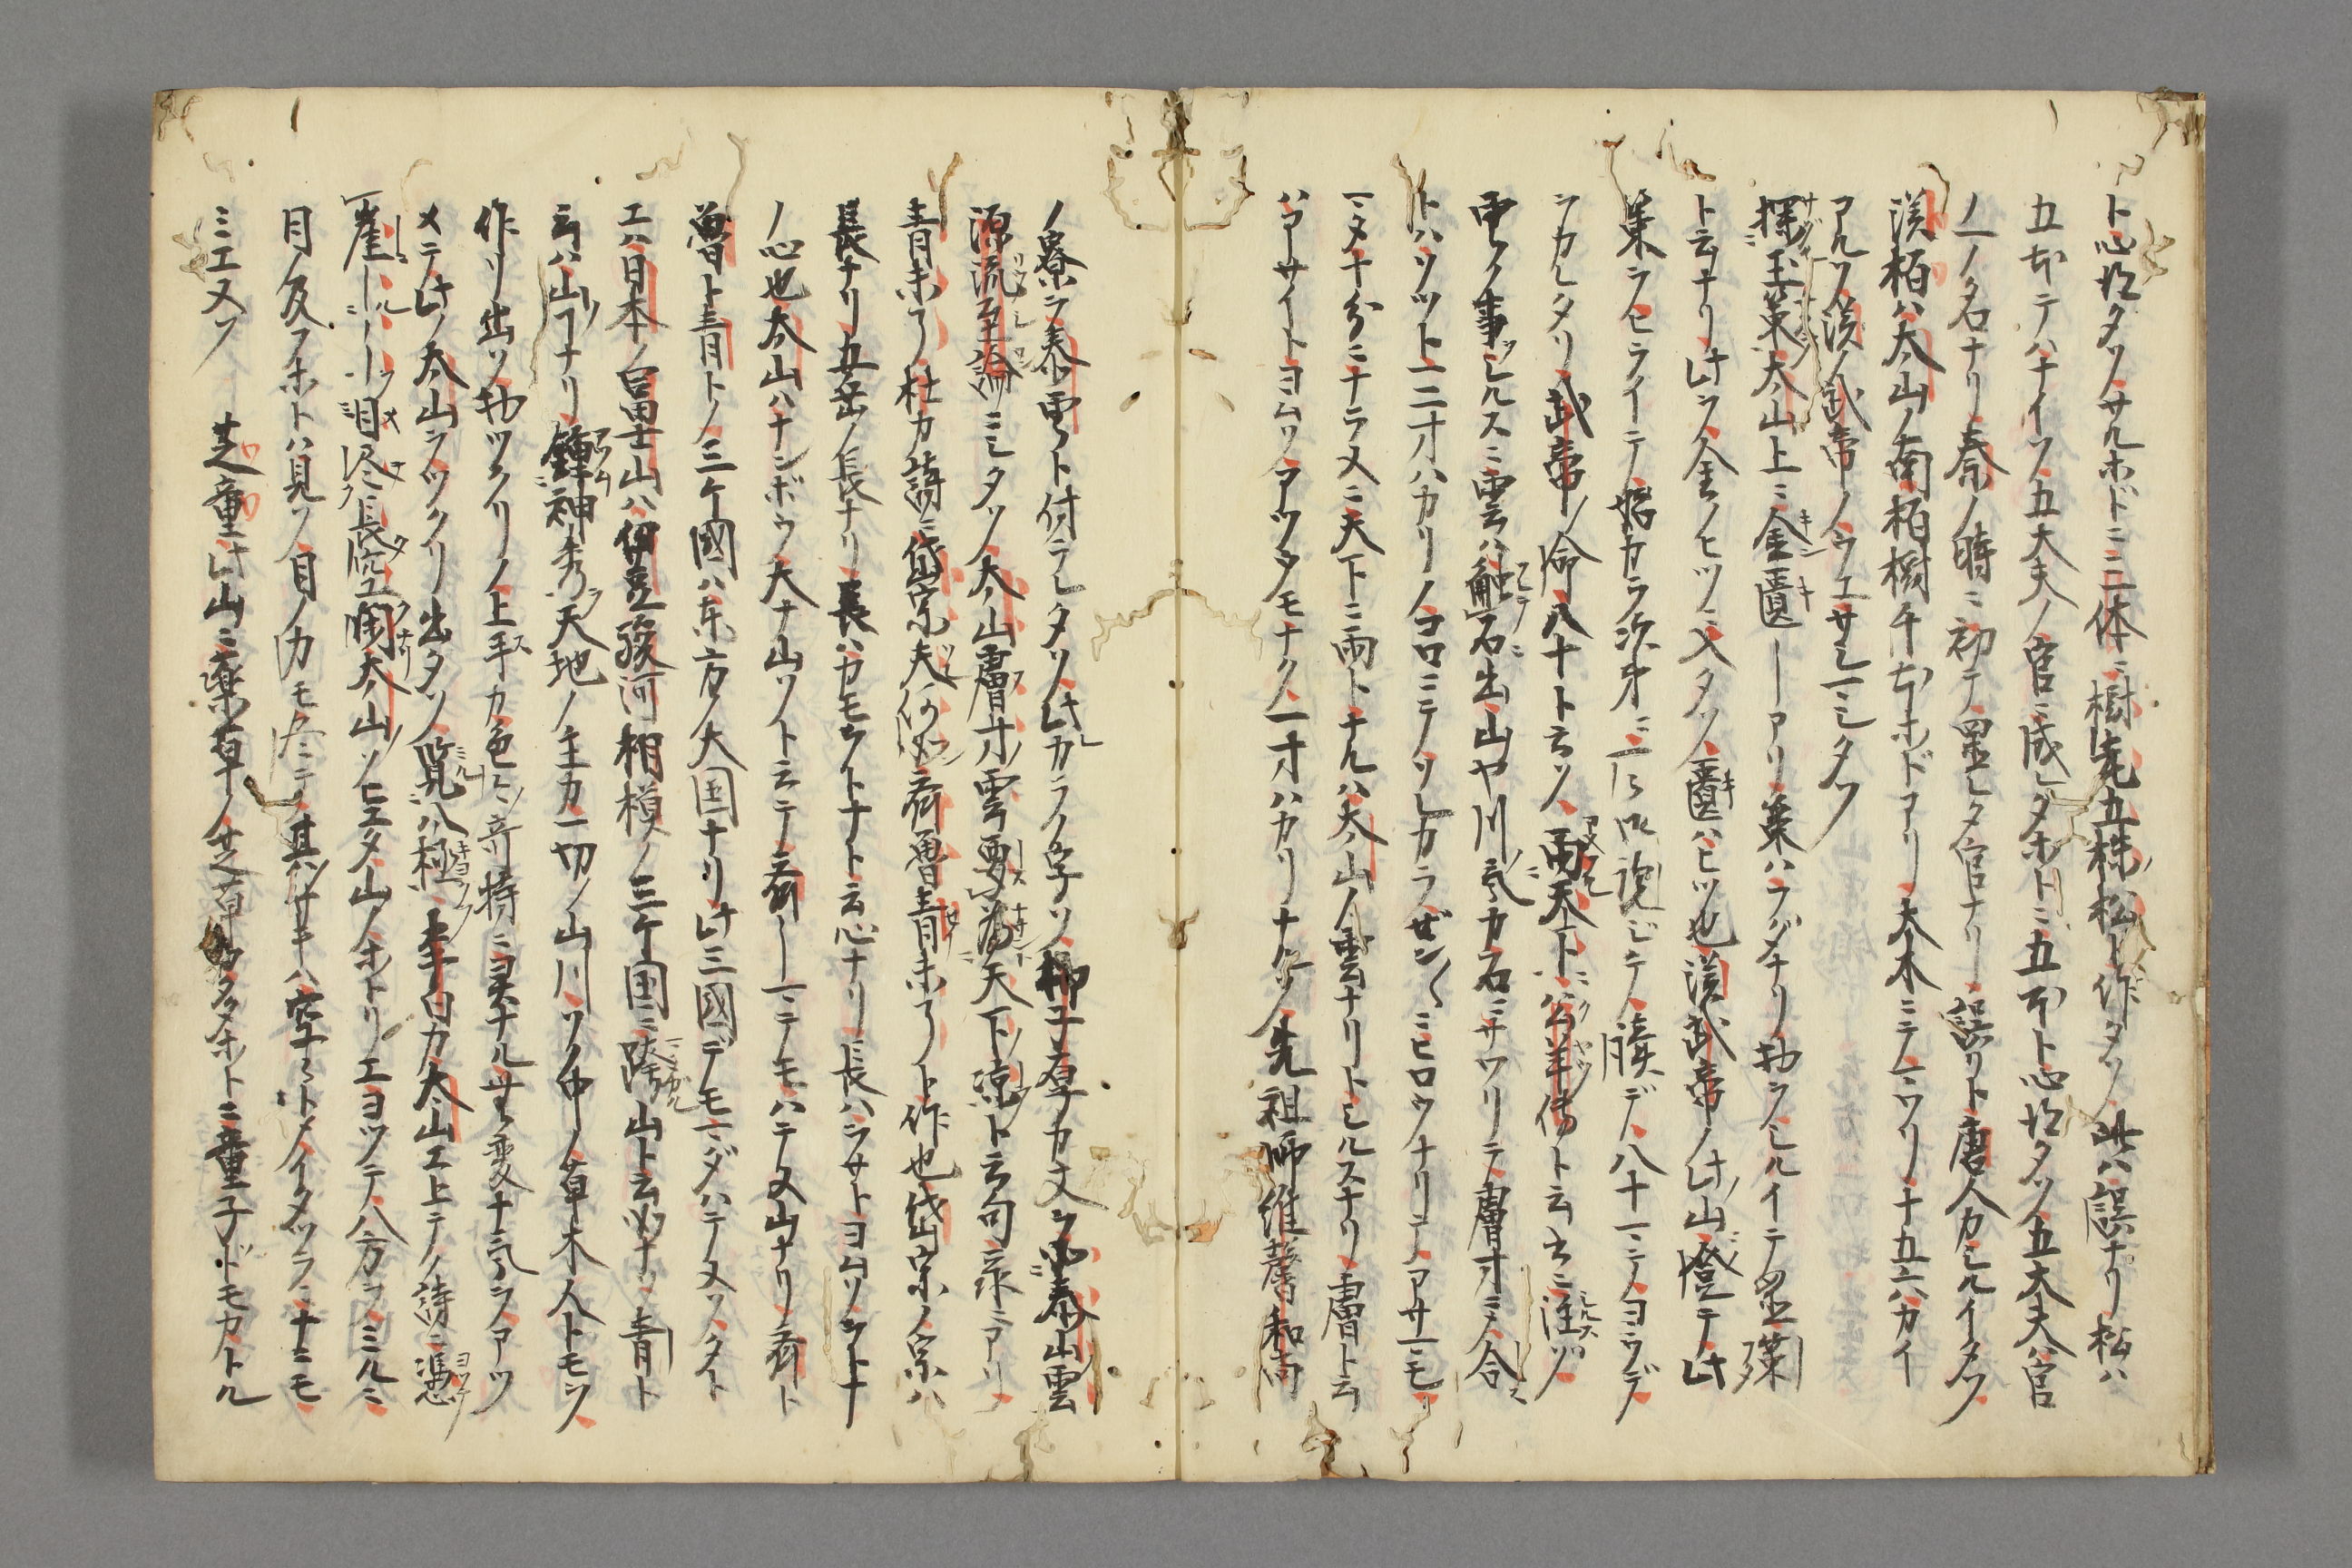 ト心得タソサルホドニ三体ニ樹老五株松ト作タソ此ハ誤ナリ松ハ
五本テハナイソ五大夫ノ官ニ成レタホトニ五本ト心得タソ五大夫ハ官
ノ一ノ名ナリ秦ノ時ニ初テ置レタ官ナリ誤リト唐人カシルイタソ
漢柏ハ太山ノ南柏樹千本ホドアリ大木ニテマワリ十五六カイ
アルソ漢ノ武帝ノウエサシマシタソ
探玉策太山上ニ金匱―アリ策ハフダナリ物ヲシルイテ置策
ト云ナリ此ヲ金ノヒツニ入タソ匱ハヒツ也漢武帝ノ此山ニ登テ此
策ヲヒライテ始カラ次才ニ
ラカレタリ武帝ノ命八十ト云ソ雨天下公羊傳ト云
雲ノ事ヲシルスニ雲ハ觸石出山ヤ川ノ気カ石ニサワリテ膚寸ニ合
トハソット一二寸ハカリノコロニテソレカラゼン〱ニヒロウナリテアサマモ
マタ十分ニナラヌニ天下ニ雨トナルハ太山ノ雲ナリトシルスナリ膚ト云
ハアサイトヨムソアツサモナク一寸ハカリナケソ先祖師維馨和尚
ノ寮ヲ泰雲ト付ラレタソ此カラノ字ソ柳子厚カ文ヲ泰山雲
源流至論ニシタソ太山膚寸雲要滿天下凉ト云句示ニアリ
青未了杜カ詩ニ岱宗夫何如斉魯青未了ト作也岱宗ノ宗ハ
長ナリ五岳ノ長ナリ長ハカモウトナト云心ナリ長ハヲサトヨムソウトナ
ノ心也太山ハナンボウ大ナ山ソト云テ斉―マテモハテヌ山ナリ斉ト
魯ト青トノ三ケ國ハ東方ノ大国ナリ此三國デモマダハテヌソタイト
エハ日本ノ冨士山ハ伊豆駿河相模ノ三ケ国ニ跨山ト云如ナリ青ト
云ハ山ノ了ナリ鍾神秀天地ノ主カ一切ノ山川ソノ中ノ草木人トモソ
作リ出ソ物ツクリノ上手カ色〻奇特ニ異ナル
メテ此ノ太山ヲツクリ出タソ覧八極李白カ太山エ上テノ詩ニ憑
崖―――目尽長空閑太山ソヒエタ山ノホトリエヨツテ八方ヲミルニ
目ノ及フホトハ見ソ目ノ力モ尽テ其ノサキハ空シトメイタツラニナニモ
ミエヌソ 芝童此山ニ薬草ノ芝草タホトニ童子ドモカトル